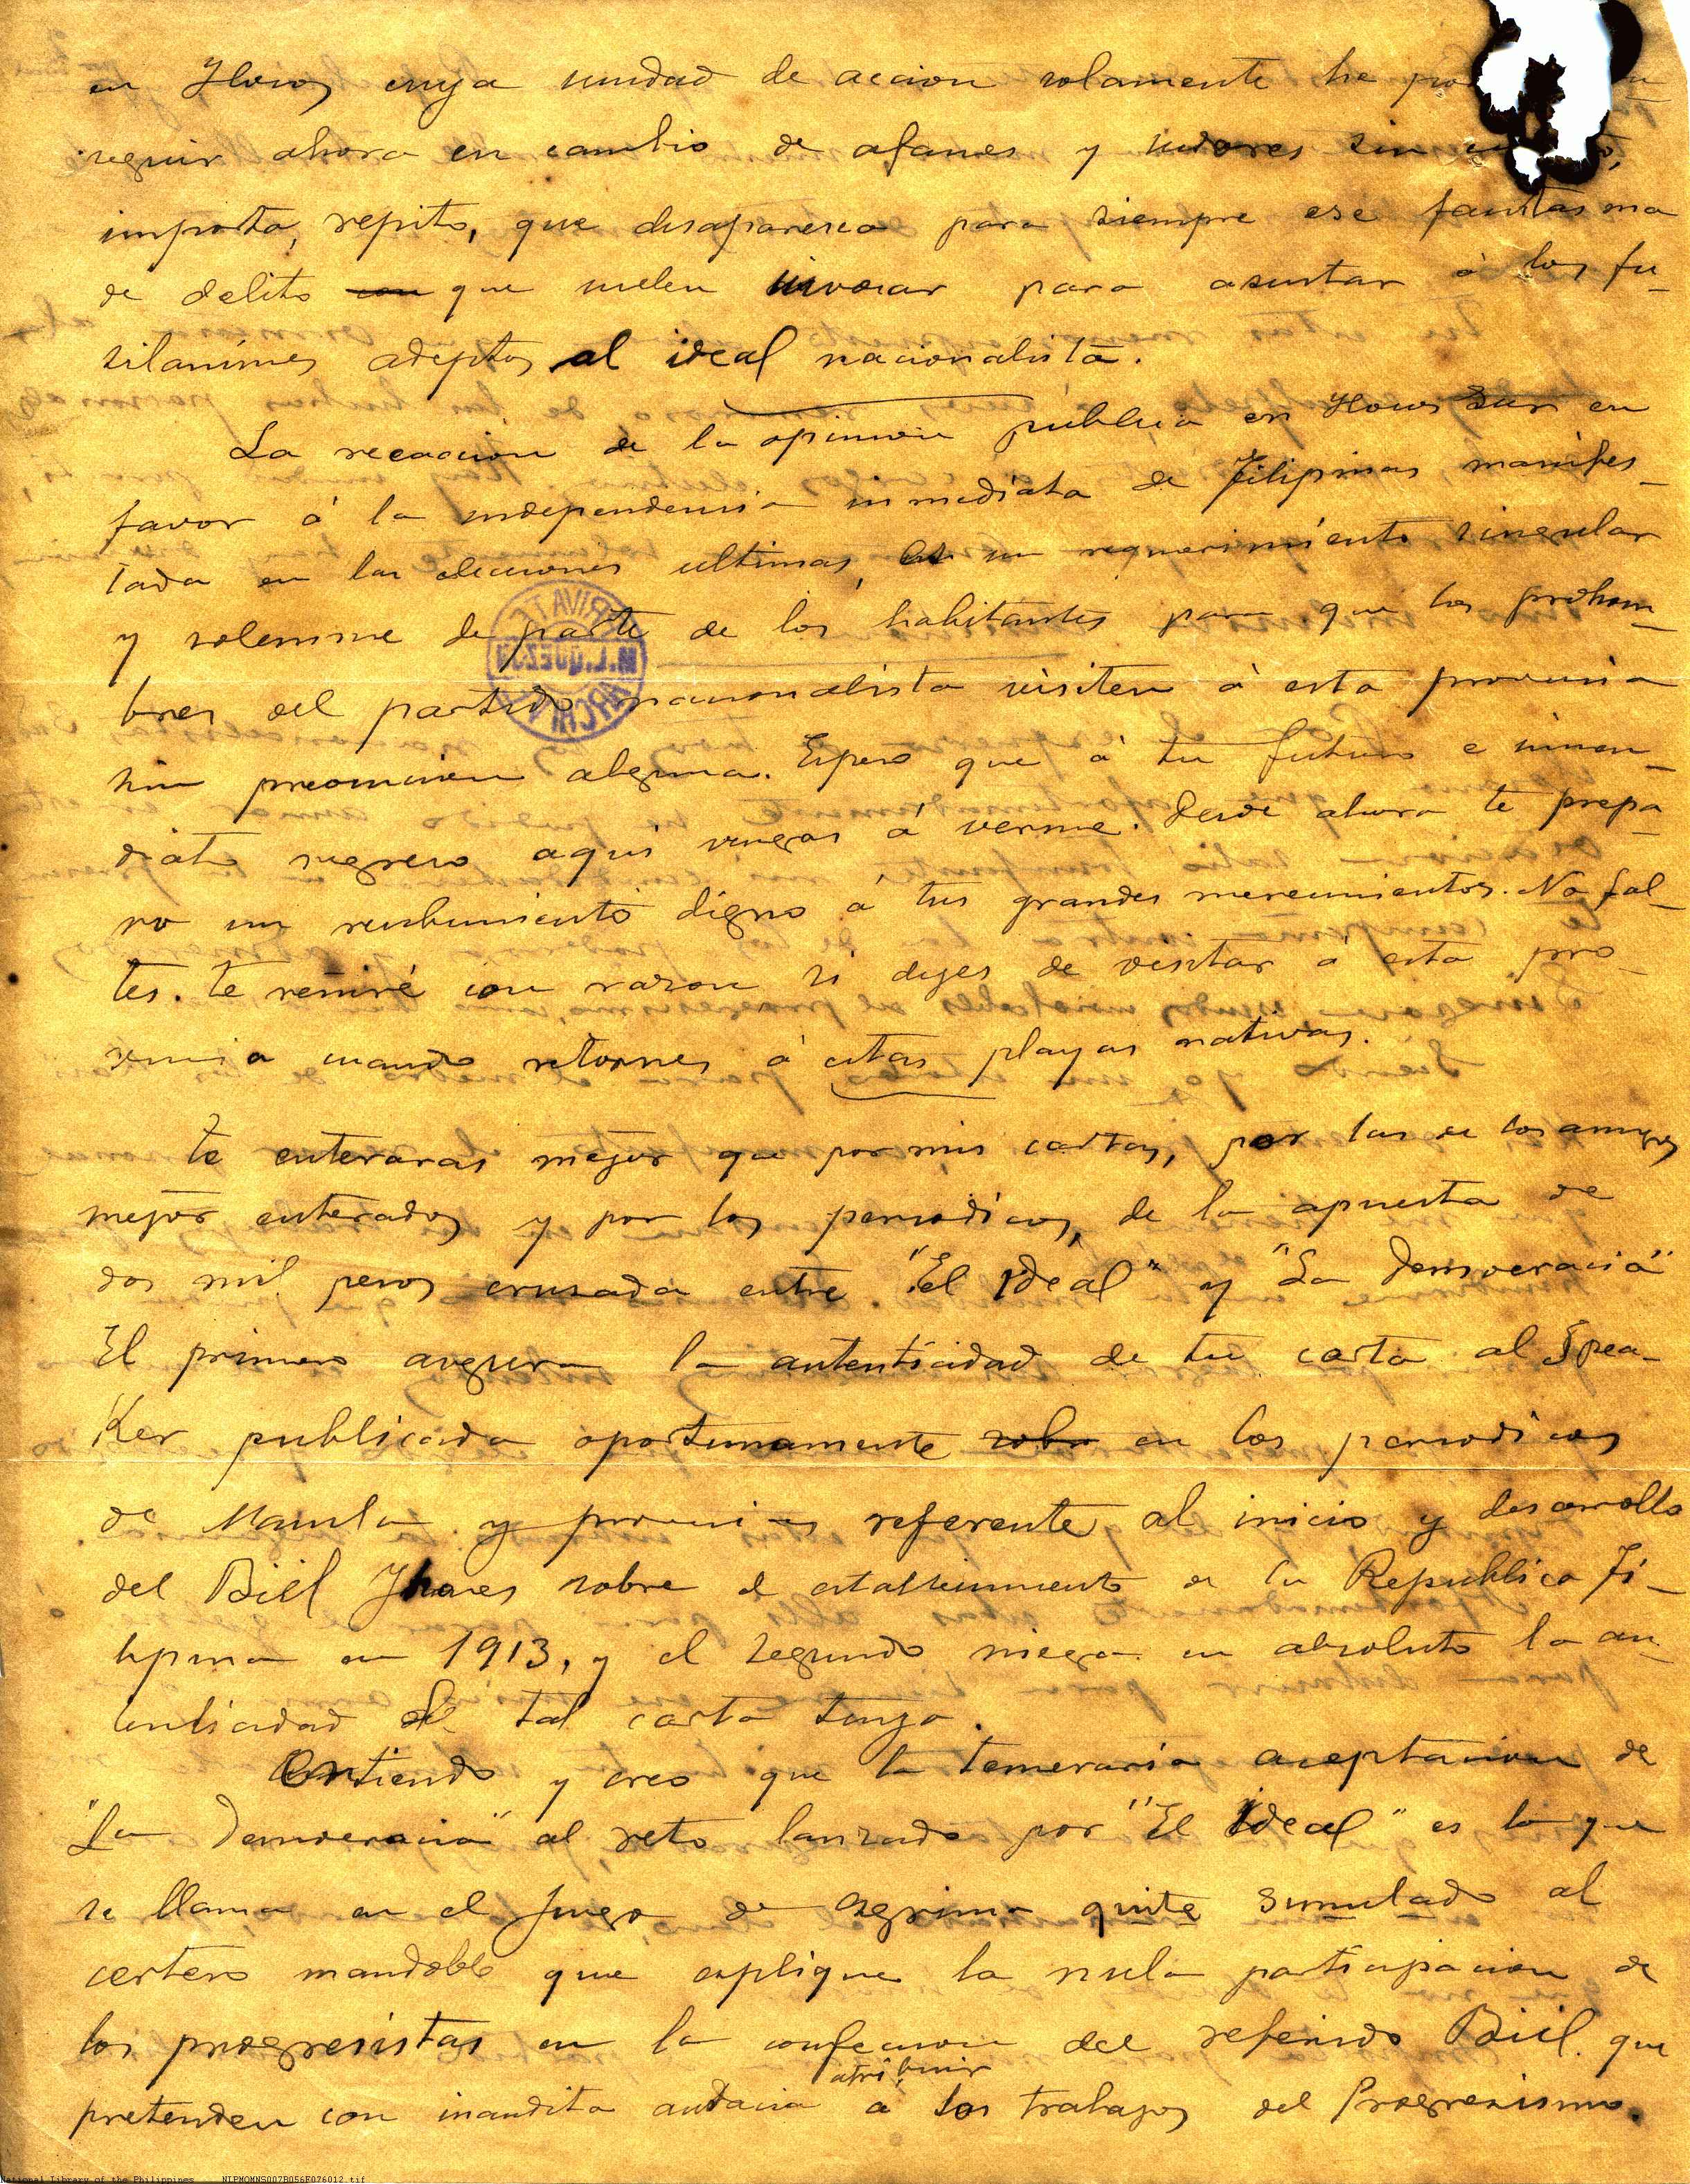 en Ilocos cuya unidad de accion solamente he
seguir ahora en cambio de afanes y sudores sin
importa, repito, que desaparesca para siempre ese fantasma
de delito con que suelen invocar para asustar á los fu-
silanimes adeptos al ideal nacionalista.
La reeaccion de la opinion publica en Ilocos Sur en
favor á la independencia inmediata de Filipinas manifes-
tada en las elecciones ultimas, es un requerimiento singular
y solemne de parte de los habitantes para que los prohom-
bres del partido nacionalista visiten á esta provincia
sin preominen alguna. Espero que á tu futuro e inmen-
diato regreso aqui vengas á verme. Desde ahora te prepa-
ro un recibimiento digno á tus grandes merecimientos. No fal-
tes. te reñiré con razon si dejes de visitar á esta pro-
vincia cuando retornes á estas playas nativas.
te enteraras mejor que por mis cartas, por las de los amigos
mejor enterados y por los periodicos, de la apuesta de
dos mil pesos crusada entre "El Ideal" y "La Democracia"
El primero asegura la autenticidad de tu carta al Spea-
ker publicada oportunamente sobr en los periodicos
de Manila y provincias referente al inicio y desarrollo
del Bill Jhones sobre el establecimiento de la Republica Fi-
lipina en 1913, y el segundo niega en absoluto la au-
tenticidad de tal carta tuya.
Entiendo y creo que la temeraria aceptacion de
"La Democracia" al reto lanzado por "El Ideal" es lo que
se llama en el juego de esgrima quite simulado al
certero mandoble que explique la nula participacion de
los progresistas en la confeccion del referido Bill. que
atribuir
pretenden con inaudita audacia á los trabajos del Progresismo.
PRIVATE
M.L. QUEZON
ARCHIVE
National Library of the Philippines NLPMQMNS007B056F026012.tif